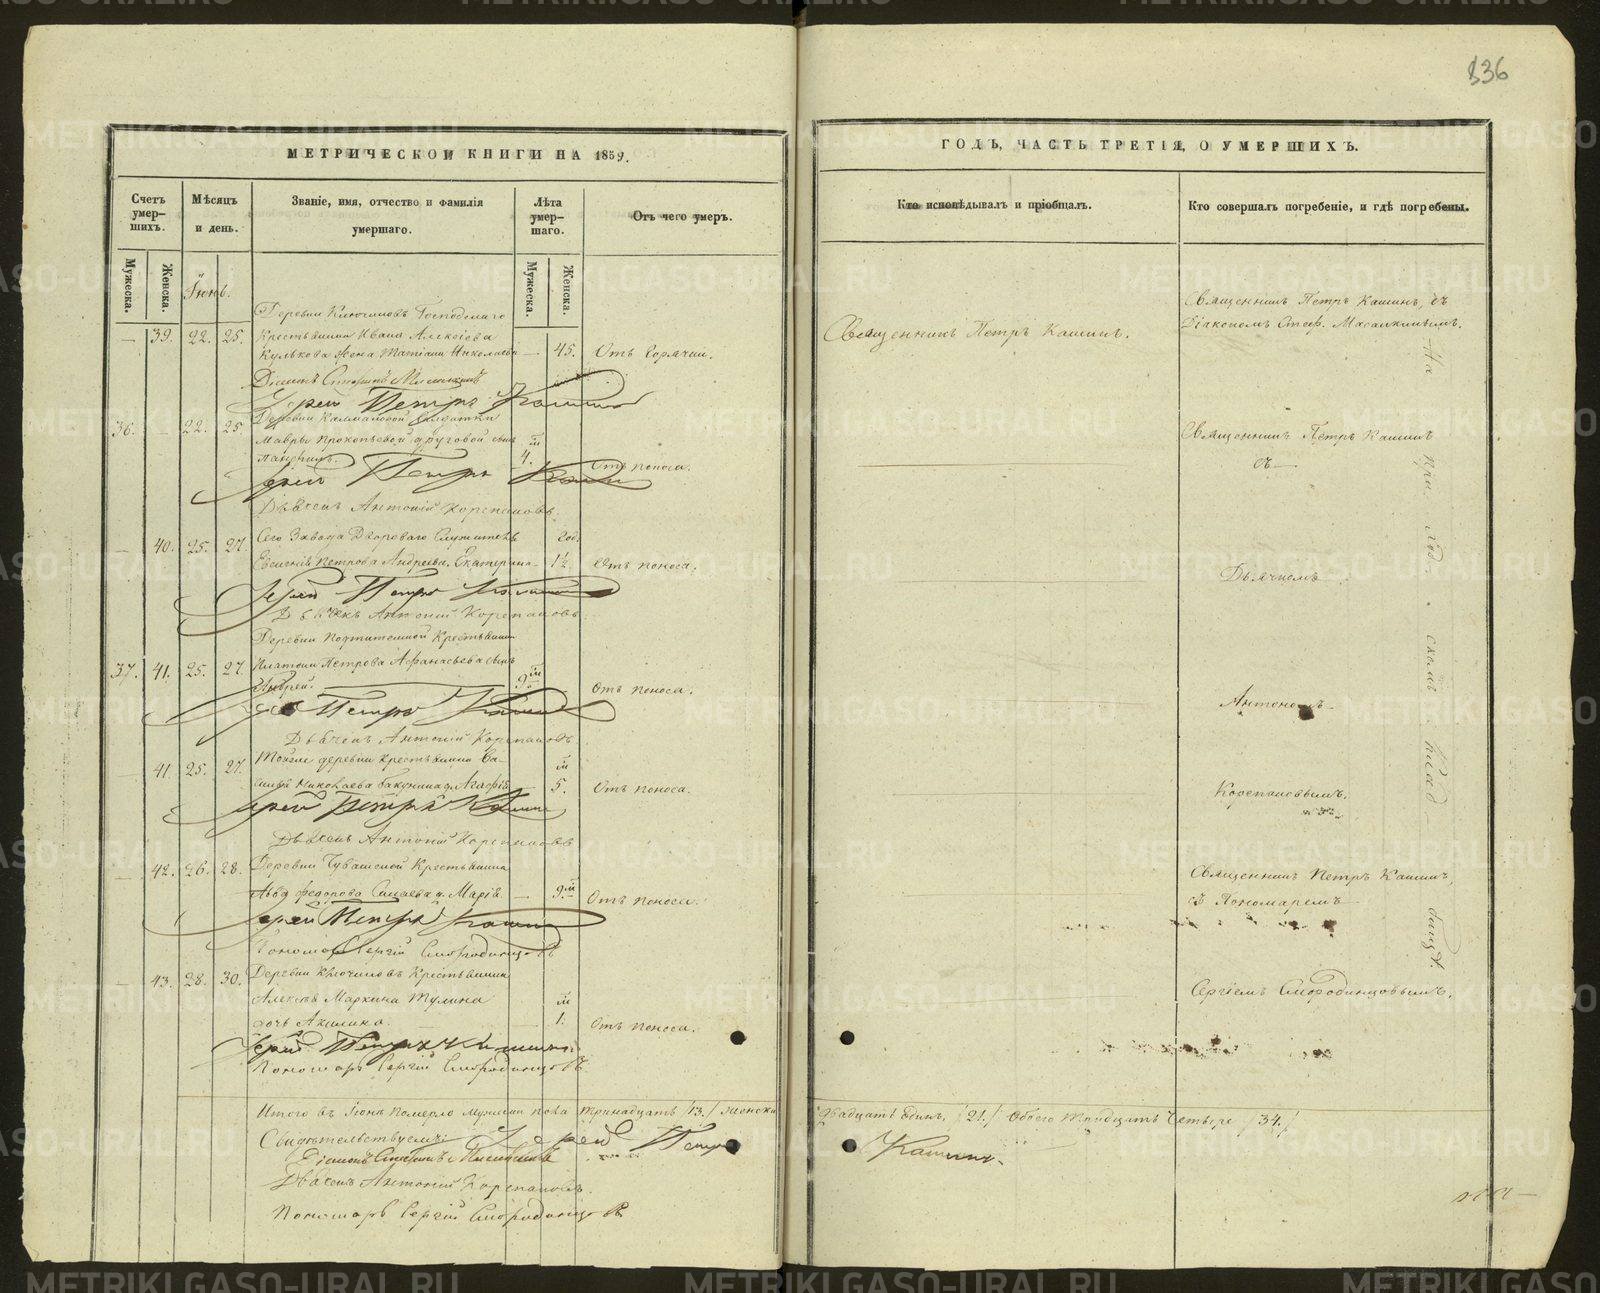 336
МЕТРИЧЕСКОЙ КНИГИ НА 1859.
ГОДЪ, ЧАСТЬ ТРЕТІЯ, О УМЕРШИХЪ.
Счетъ умер-шихъ.
Мѣсяцъ и день.
Званіе, имя, отчество и фамилія умершаго.
Лѣта умер-шаго.
Отъ чего умеръ.
Кто исповѣдывалъ и пріобщалъ.
Кто совершалъ погребеніе, и гдѣ погребены.
Мужеска.
Женска.
Мужеска.
Женска.
Іюнь.
Деревни Ключиковъ Господскаго
— 39. 22. 25. Крестьянина Ивана Алексѣева
Кулькова жена Татіана Николаева — 45. Отъ Горячки.
Священникъ Петръ Кашинъ.
Священникъ Петръ Кашинъ, съ
Діякономъ Стеф.
Діаконъ Стефанъ
Іерей Петръ Кашинъ
36. — 22. 25. Деревни солдатки
Мавры Прокопьевой сынъ
4. Отъ поноса.
Священникъ Петръ Кашинъ
съ
Іерей Петръ Кашинъ
Дьячекъ Антоній Корепановъ.
— 40. 25. 27. Сего Завода Двороваго Служителя
год.
Евгенія Петрова Екатерина 1½ Отъ поноса.
Дьячкомъ
Іерей Петръ Кашинъ
Дьячекъ Антоній Корепановъ
Деревни Крестьянина
37. 41. 25. 27. Платона Петрова Афанасьева сынъ
Андрей. 9. Отъ поноса.
Антоніемъ
Іерей Петръ Кашинъ
Дьячекъ Антоній Корепановъ
41. 25. 27. Тойже деревни крестьянина Ва-
силія Николаева Агафія 5. Отъ поноса.
Корепановымъ.
Іерей Петръ Кашинъ
Дьячекъ Антоній Корепановъ
— 42. 26. 28. Деревни Чувашской Крестьянина
Льва Федорова Марія — 9. Отъ поноса.
Священникъ Петръ Кашинъ,
съ Пономаремъ
Іерей Петръ Кашинъ
Пономарь Сергій Смородинцовъ
— 43. 28. 30. Деревни Ключиковъ Крестьянина
Маркина Тулина
дочь Акилина. 1. Отъ поноса.
Сергіемъ Смородинцовымъ.
Іерей Петръ Кашинъ
Пономарь Сергій Смородинцовъ
На
Клад
бищѣ
Итого въ Іюнѣ померло мужеска пола тринадцать /13./ женска двадцать Единъ, /21./ обоего тридцать Четыре /34./
Свидѣтельствуемъ: Іерей Петръ Кашинъ.
Діаконъ Стефанъ
Дьячекъ Антоній Корепановъ.
Пономарь Сергій Смородинцовъ
METRIKI.GASO-URAL.RU